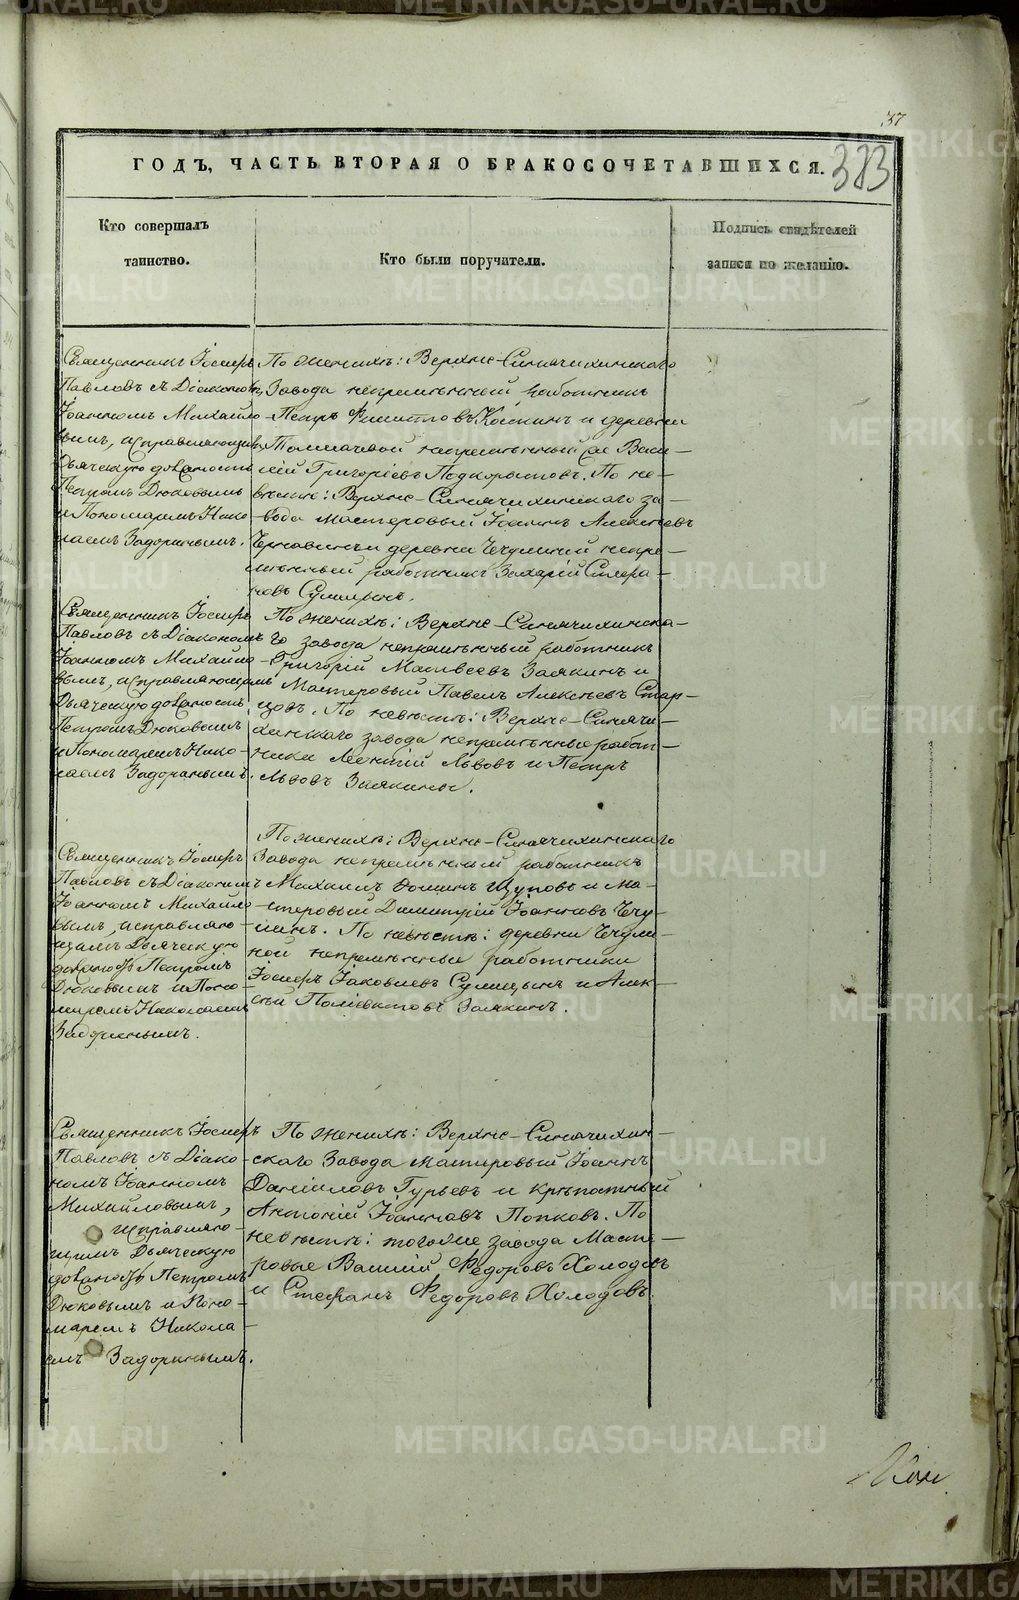 37
ГОДЪ, ЧАСТЬ ВТОРАЯ О БРАКОСОЧЕТАВШИХСЯ.
383
Кто совершалъ
таинство.
Кто были поручители.
Подпись свидѣтелей
записи по желанію.
Священникъ Іосифъ
Павловъ съ Діакономъ
Іоанномъ Михайло-
вымъ, исправляющимъ
Дьяческую должность
Петромъ Дюковымъ
и Пономаремъ Нико-
лаемъ Задоринымъ.
По женихѣ: Верхне-Синячихинскаго
Завода непремѣнный работникъ
Петръ Филипповъ и деревни
Толмачевой непремѣнный Васи-
лій Григорьевъ Подкорытовъ. По не-
вѣстѣ: Верхне-Синячихинскаго за-
вода мастеровый Іоаннъ Алексѣевъ
Чернавинъ и деревни Чечулиной непре-
мѣнный работникъ Захарій Стефа-
новъ Сулицынъ.
Священникъ Іосифъ
Павловъ съ Діакономъ
Іоанномъ Михайло-
вымъ, исправляющимъ
Дьяческую должность
Петромъ Дюковымъ
и Пономаремъ Нико-
лаемъ Задоринымъ.
По женихѣ: Верхне-Синячихинска-
го завода непремѣнный работникъ
Григорій Матвеевъ Заякинъ и
Мастеровый Павелъ Алексѣевъ Стар-
цовъ. По невѣстѣ: Верхне-Синячи-
хинскаго завода непремѣнные работ-
ники Леонтій Львовъ и Петръ
Львовъ Заякины.
Священникъ Іосифъ
Павловъ съ Діакономъ
Іоанномъ Михайло-
вымъ, исправляю-
щимъ Дьяческую
должность Петромъ
Дюковымъ и Поно-
маремъ Николаемъ
Задоринымъ.
По женихѣ: Верхне-Синячихинскаго
Завода непремѣнный работникъ
Михаилъ Фоминъ Щуповъ и Ма-
стеровый Димитрій Іоанновъ Чечу-
линъ. По невѣстѣ: деревни Чечули-
ной непремѣнные работники
Іосифъ Іаковлевъ Сулицынъ и Алек-
сѣй Поліевктовъ Заякинъ.
Священникъ Іосифъ
Павловъ съ Діако-
номъ Іоанномъ
Михайловымъ,
исправляю-
щимъ Дьяческую
должность Петромъ
Дюковымъ и Поно-
маремъ Никола-
емъ Задоринымъ.
По женихѣ: Верхне-Синячихин-
скаго Завода мастеровый Іоаннъ
Даніиловъ Гурьевъ и крѣпостный
Антоній Іоанновъ Попковъ. По
невѣстѣ: тогоже завода Масте-
ровые Василій Федоровъ Холодовъ
и Стефанъ Федоровъ Холодовъ.
METRIKI.GASO-URAL.RU